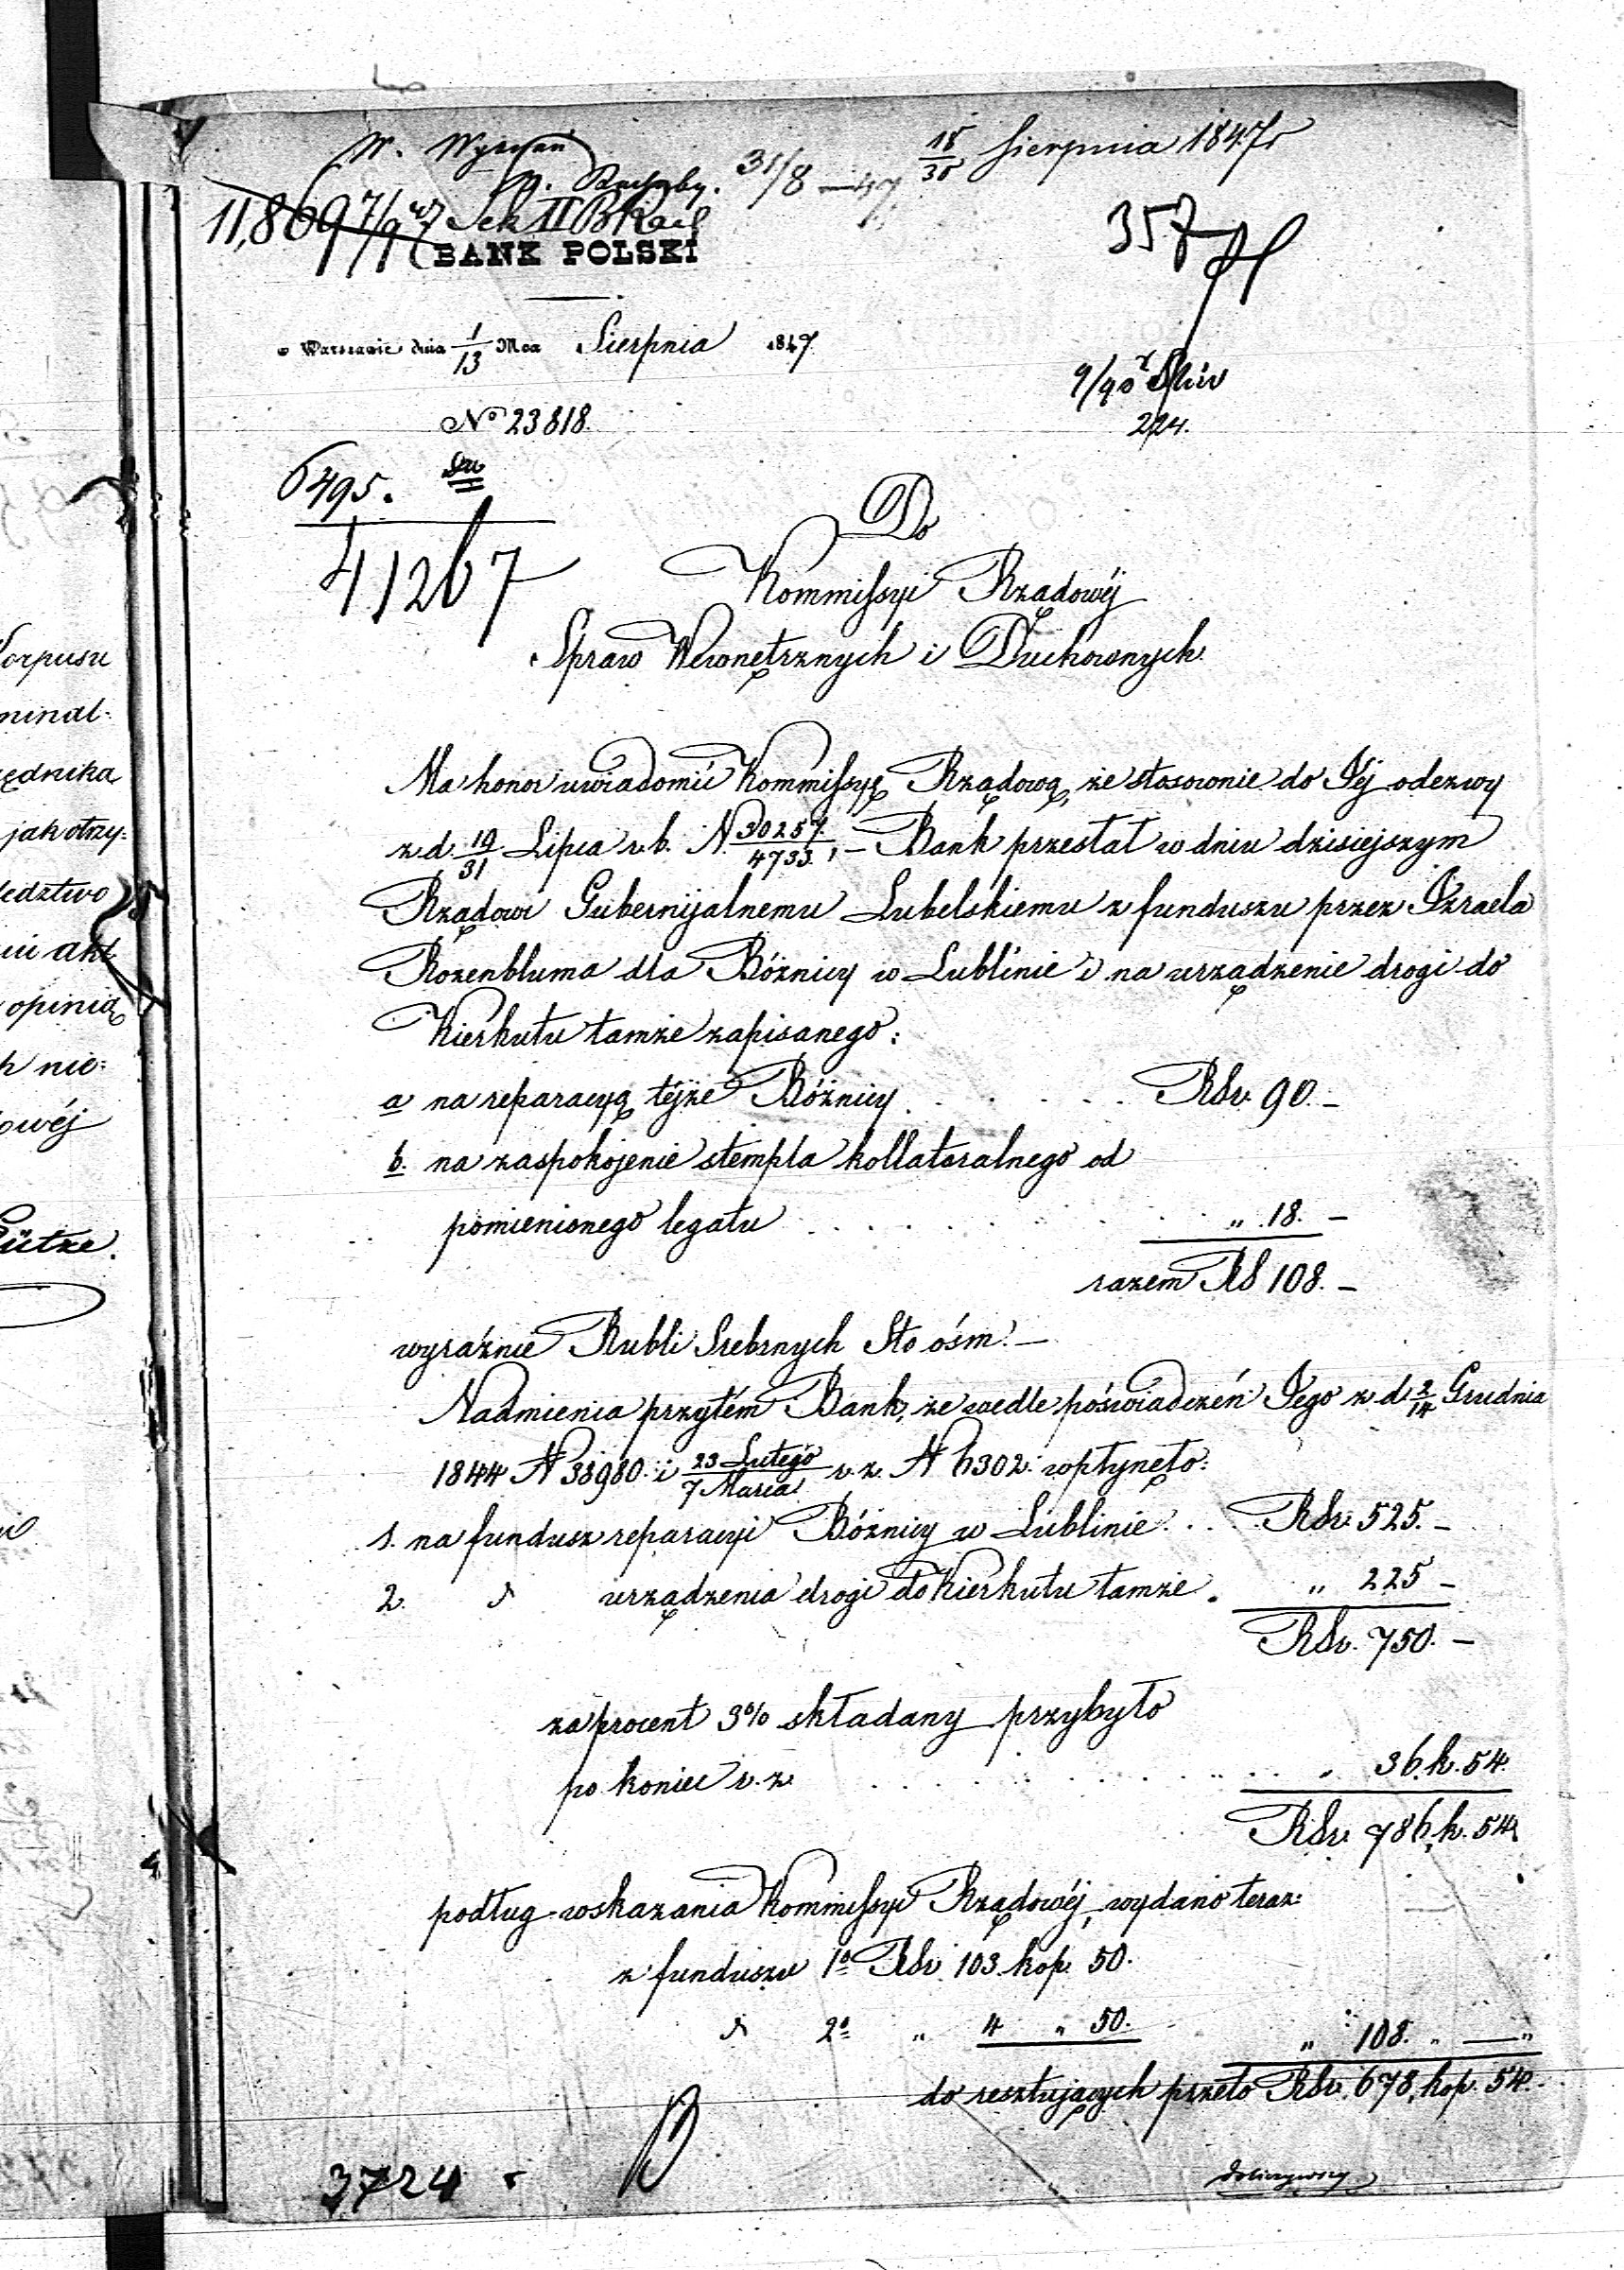 18/30 Sierpnia 1847 r
31/8 – 47
11,869 7/9 47 Sek II
357
BANK POLSKI
w Warszawie dnia 1/13 Mca Sierpnia 1847.
No 23818.
224.
6495.
41267
Do
Kommissyi Rządowéj
Spraw Wewnętrznych i Duchownych.
Ma honor uwiadomić Kommissyę Rządową, że stosownie do Jéj odezwy
z d. 19/31 Lipca r.b. N. 30257/4733, – Bank przesłał w dniu dzisiejszym
Rządowi Gubernijalnemu Lubelskiemu z funduszu przez Izraela
Rozenbluma dla Bóżnicy w Lublinie i na urządzenie drogi do
Kierkutu tamże zapisanego:
a na reparacyą téjże Bóżnicy . . . . . RSr. 90. –
b. na zaspokojenie stempla kollateralnego od
pomienionego legatu . . . . . . „ 18. –
razem RS 108. –
wyraźnie Rubli Srebrnych Sto ośm. –
Nadmienia przytém Bank, że wedle poświadczeń Jego z d. 2/14 Grudnia
1844 N 38980. i 23 Lutego/7 Marca r.z. N 6302. wpłynęło:
1. na fundusz reparacyi Bóżnicy w Lublinie . . . RSr. 525. –
2. „ urządzenia drogi do Kierkutu tamże . „ 225 –
RSr. 750. –
za procent 3% składany przybyło
po koniec r.z. . . . . . . . . „ 36. k. 54.
RSr. 786, k. 54.
podług wskazania Kommissyi Rządowéj, wydano teraz:
z funduszu 1o RSr. 103. kop. 50.
„ 2o „ 4 „ 50. „ 108. „ — „
do resztujących przeto RSr. 678, kop. 54.
3724
orpusu
minal-
ędnika
jak otrzy-
ledztwo
akt
opinią
h nie-
owéj